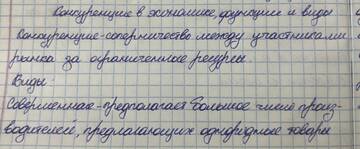 Конкуренция в экономике, функции и виды
Конкуренция-соперничество между участниками
рынка за ограниченные ресурсы.
Виды:
Совершенная-предполагает большое число произ-
водителей, предлагающих однородные товары